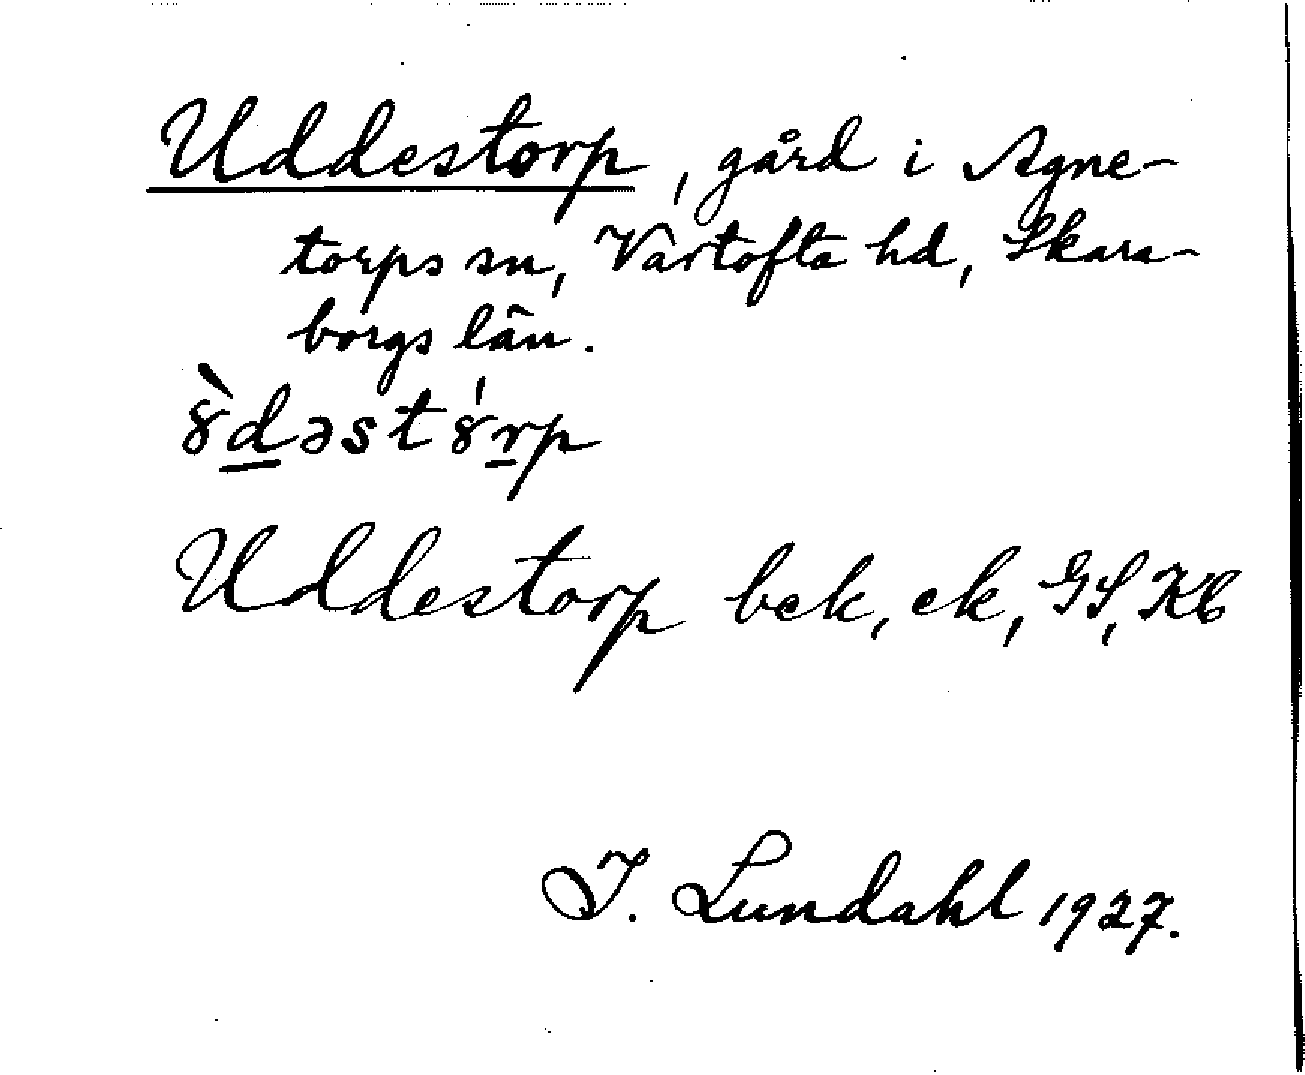 Uddestorp, gård i Agne-
torps sn, Vartofta hd, Skara-
borgs län.
ȣ̀d̲əstȣ́r̲p
Uddestorp bek, ek, GS, Kb
I. Lundahl 1927.